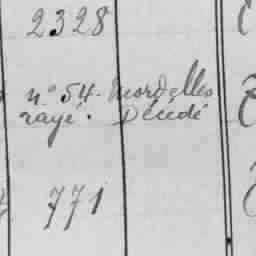 2328
n° 54 - Mordelles
rayé. Décédé
771